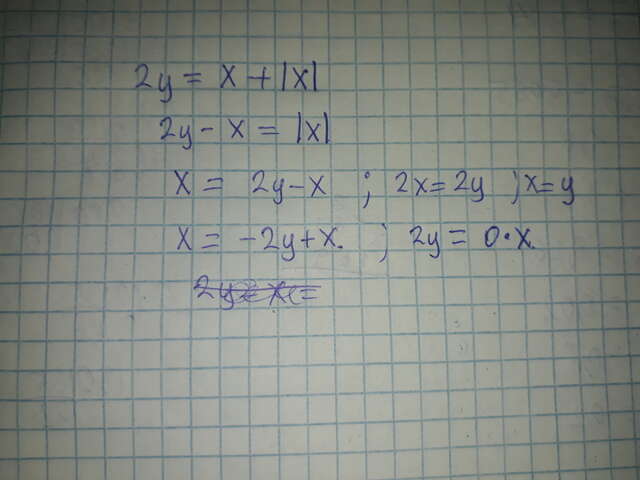 2y = x + |x|
2y - x = |x|
x = 2y - x ; 2x = 2y ; x = y
x = -2y + x. ; 2y = 0·x.